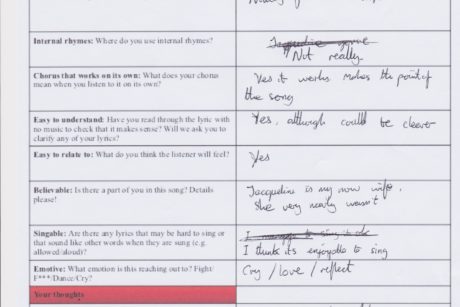 Internal rhymes: Where do you use internal rhymes?
Not really
Chorus that works on its own: What does your chorus
mean when you listen to it on its own?
Yes it works. Makes the point of
the song
Easy to understand: Have you read through the lyric with
no music to check that it makes sense? Will we ask you to
clarify any of your lyrics?
Yes, although could be clever
Easy to relate to: What do you think the listener will feel?
Yes
Believable: Is there a part of you in this song? Details
please!
Jacqueline is my now wife.
She very nearly wasn't
Singable: Are there any lyrics that may be hard to sing or
that sound like other words when they are sung (e.g.
allowed/aloud)?
I think it's enjoyable to sing
Emotive: What emotion is this reaching out to? Fight/
F***/Dance/Cry?
Cry / love / reflect
Your thoughts